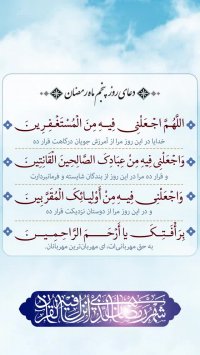 دعای روز پنجم ماه رمضان
اللَّهُمَّ اجْعَلْنِي فِيهِ مِنَ الْمُسْتَغْفِرِينَ
خدایا در این روز مرا از آمرزش جویان درگاهت قرار ده
وَاجْعَلْنِي فِيهِ مِنْ عِبَادِكَ الصَّالِحِينَ الْقَانِتِينَ
و قرار ده مرا در این روز از بندگان شایسته و فرمانبردارت
وَاجْعَلْنِي فِيهِ مِنْ أَوْلِيَائِكَ الْمُقَرَّبِينَ
و در این روز مرا از دوستان نزدیکت قرار ده
بِرَأْفَتِكَ يَا أَرْحَمَ الرَّاحِمِينَ
به حق مهربانی‌ات، ای مهربان‌ترین مهربانان.
شهر رمضان الذی انزل فیه القرآن